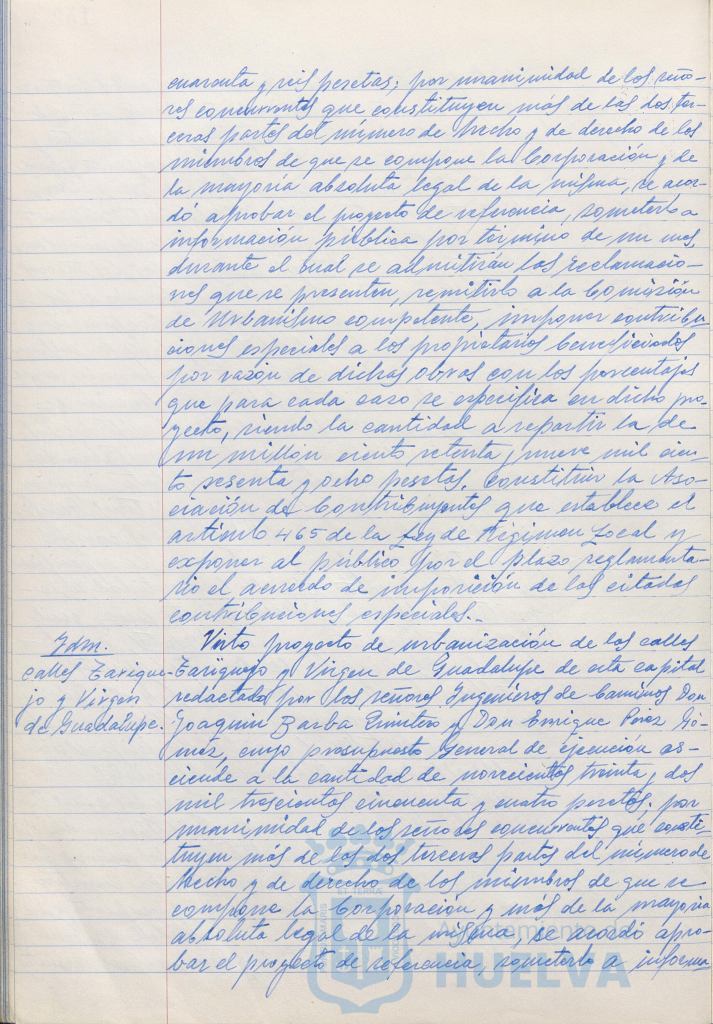 cuarenta y seis pesetas; por unanimidad de los seño-
res concurrentes que constituyen más de las dos ter-
ceras partes del número de hecho y de derecho de los
miembros de que se compone la Corporación y de
la mayoría absoluta legal de la misma, se acor-
dó aprobar el proyecto de referencia, someterlo a
información pública por término de un mes
durante el cual se admitirán las reclamacio-
nes que se presenten, remitirlo a la Comisión
de Urbanismo competente, imponer contribu
ciones especiales a los propietarios beneficiados
por razón de dichas obras con los porcentajes
que para cada caso se especifica en dicho pro-
yecto, siendo la cantidad a repartir la de
un millón ciento setenta y nueve mil cien-
to sesenta y ocho pesetas, constituir la Aso-
ciación de Contribuyentes que establece el
artículo 465 de la Ley de Régimen Local y
exponer al público por el plazo reglamenta-
rio el acuerdo de imposición de las citadas
contribuciones especiales.-
Idm.
calles Tarique-
jo y Virgen
de Guadalupe.
Visto proyecto de urbanización de las calles
Tariquejo y Virgen de Guadalupe de esta capital
redactado por los señores Ingenieros de Caminos Don
Joaquín Barba Quintero y Don Enrique Pérez Gó-
mez, cuyo presupuesto General de ejecución as-
ciende a la cantidad de novecientas treinta y dos
mil trescientas cincuenta y cuatro pesetas; por
unanimidad de los señores concurrentes que consti-
tuyen más de las dos terceras partes del número de
hecho y de derecho de los miembros de que se
compone la Corporación y más de la mayoría
absoluta legal de la misma, se acordó apro-
bar el proyecto de referencia, someterlo a informa
Ayuntamiento de
HUELVA